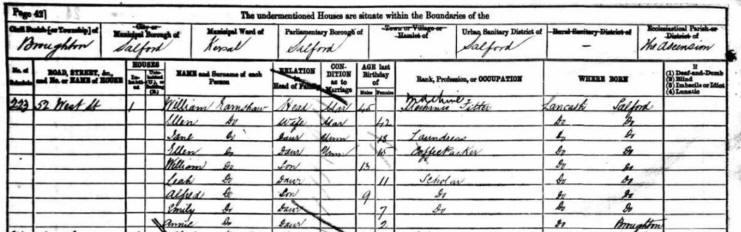 Page 42] The undermentioned Houses are situate within Boundaries of the
Civil Parish [or Township] of City or Municipal Borough of Municipal Ward of Parliamentary Borough of Town or Village or Hamlet of Urban Sanitary District of Rural Sanitary District of Ecclesiastical Parish or District of
Broughton Salford Kersal Salford Salford The Ascension
No. of Schedule ROAD, STREET, &c., and No. or NAME of HOUSE HOUSES NAME and Surname of each Person RELATION to Head of Family CONDITION as to Marriage AGE last Birthday of Males Females Rank, Profession, or OCCUPATION WHERE BORN If (1) Deaf-and-Dumb (2) Blind (3) Imbecile or Idiot (4) Lunatic
223 52 West St 1 William Earnshaw Head Mar 45 Machine Fitter Lancash Salford
Ellen Do Wife Mar 42 Do Do
Jane Do Daur Unm 18 Laundress Do Do
Ellen Do Daur Unm 15 Do Do
William Do Son 13 Do Do
Leah Do Daur 11 Scholar Do Do
Alfred Do Son 9 Do Do Do
Emily Do Daur 7 Do Do Do
Annie Do Daur 2 Do Broughton